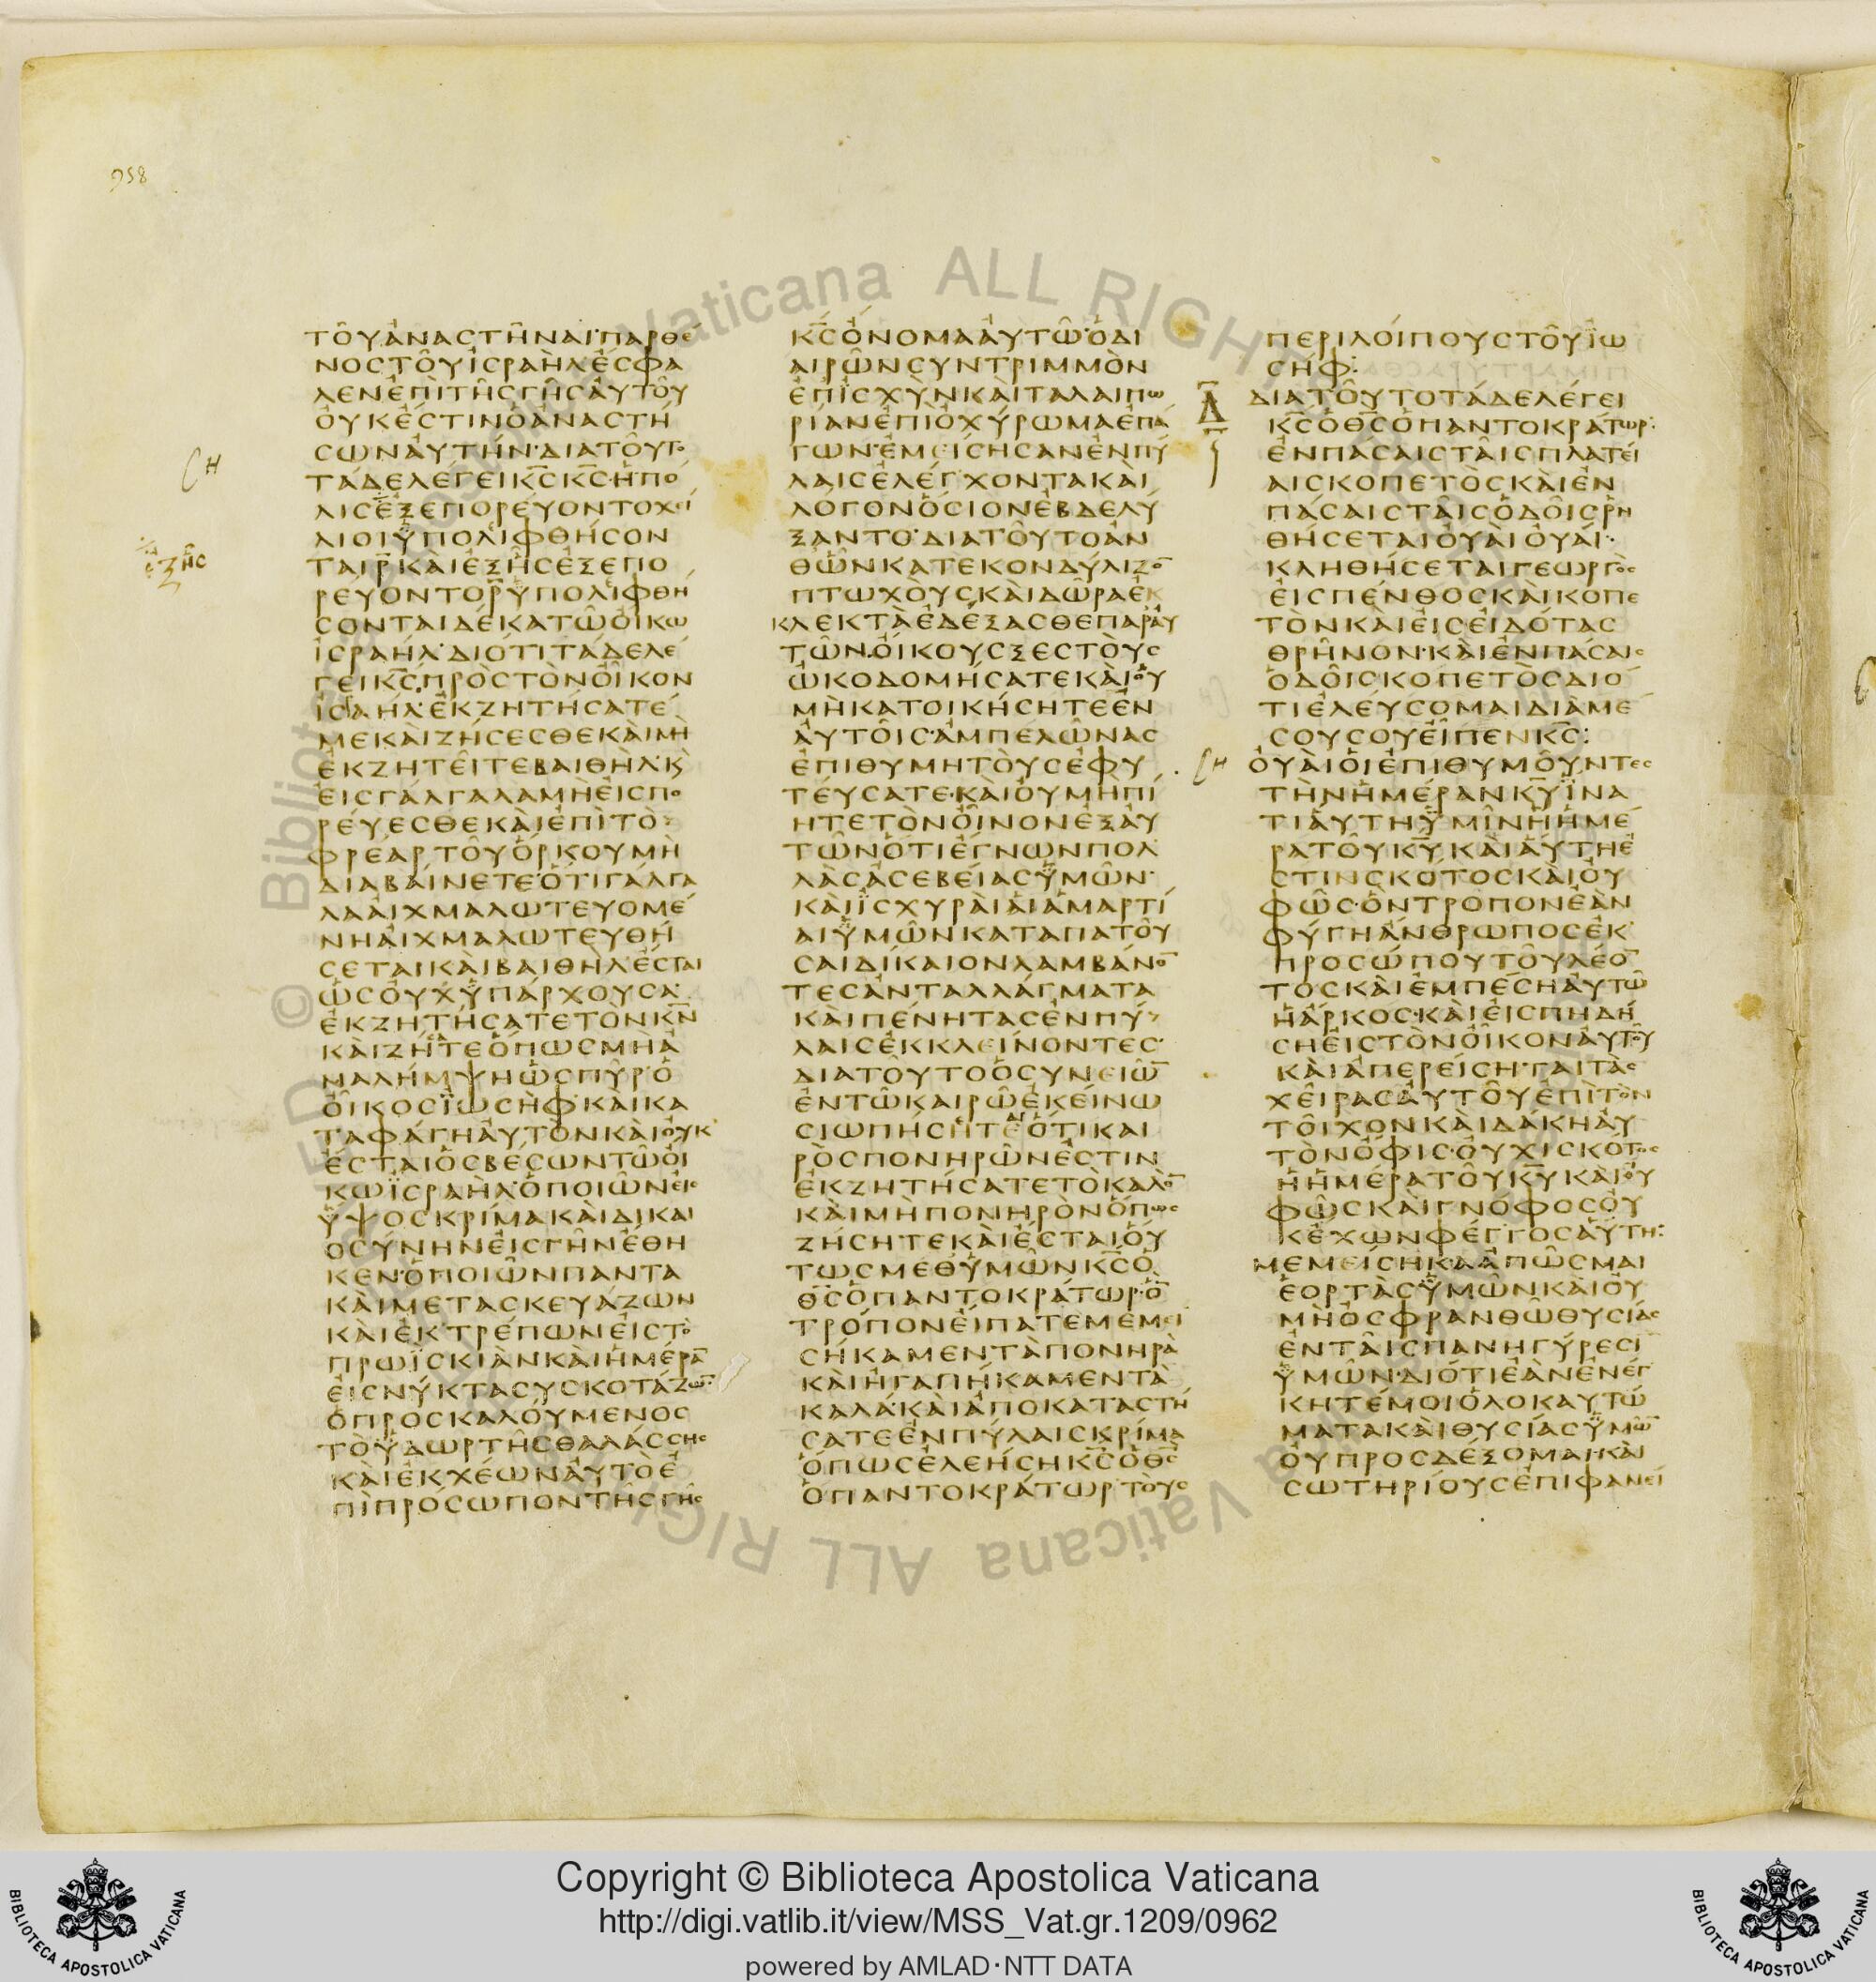 958
ΤΟΥΑΝΑCΤΗΝΑΙ·ΠΑΡΘΕ
ΝΟCΤΟΥΙCΡΑΗΛΕCΦΑ
ΛΕΝΕΠΙΤΗCΓΗCΑΥΤΟΥ
ΟΥΚΕCΤΙΝΟΑΝΑCΤΗ
CΩΝΑΥΤΗΝ·ΔΙΑΤΟΥΤΟ
ΤΑΔΕΛΕΓΕΙΚC̅ΚC̅·ΗΠΟ
ΛΙCΕΞΕΠΟΡΕΥΟΝΤΟΧΕΙ
ΛΙΟΙΥΠΟΛΙΦΘΗCΟΝ
ΤΑΙΡ̅ΚΑΙΕΞΗCΕΞΕΠΟ
ΡΕΥΟΝΤΟΡ̅ΥΠΟΛΙΦΘΗ
CΟΝΤΑΙΔΕΚΑΤΩΟΙΚΩ
ΙCΡΑΗΛ·ΔΙΟΤΙΤΑΔΕΛΕ
ΓΕΙΚC̅ΠΡΟCΤΟΝΟΙΚΟΝ
ΙCΑΗΛ·ΕΚΖΗΤΗCΑΤΕ
ΜΕΚΑΙΖΗCΕCΘΕΚΑΙΜΗ
ΕΚΖΗΤΕΙΤΕΒΑΙΘΗΛ·Κ
ΕΙCΓΑΛΓΑΛΑΜΗΕΙCΠΟ
ΡΕΥΕCΘΕΚΑΙΕΠΙΤΟ
ΦΡΕΑΡΤΟΥΟΡΚΟΥΜΗ
ΔΙΑΒΑΙΝΕΤΕ·ΟΤΙΓΑΛΓΑ
ΛΑΑΙΧΜΑΛΩΤΕΥΟΜΕ
ΝΗΑΙΧΜΑΛΩΤΕΥΘΗ
CΕΤΑΙΚΑΙΒΑΙΘΗΛΕCΤΑΙ
ΩCΟΥΧΥΠΑΡΧΟΥCΑ·
ΕΚΖΗΤΗCΑΤΕΤΟΝΚΝ̅
ΚΑΙΖΗΤΕΟΠΩCΜΗΑ
ΝΑΛΗΜΨΗΩCΠΥΡΟ
ΟΙΚΟCΙΩCΗΦ·ΚΑΙΚΑ
ΤΑΦΑΓΗΑΥΤΟΝΚΑΙΟΥΚ
ΕCΤΑΙΟCΒΕCΩΝΤΩΟΙ
ΚΩΙCΡΑΗΛ·ΟΠΟΙΩΝΕΙC
ΥΨΟCΚΡΙΜΑΚΑΙΔΙΚΑΙ
ΟCΥΝΗΝΕΙCΓΗΝΕΘΗ
ΚΕΝ·ΟΠΟΙΩΝΠΑΝΤΑ
ΚΑΙΜΕΤΑCΚΕΥΑΖΩΝ
ΚΑΙΕΚΤΡΕΠΩΝΕΙCΤΟ
ΠΡΩΙCΚΙΑΝΚΑΙΗΜΕΡΑ̅
ΕΙCΝΥΚΤΑCΥCΚΟΤΑΖΩ̅·
ΟΠΡΟCΚΑΛΟΥΜΕΝΟC
ΤΟΥΔΩΡΤΗCΘΑΛΑCCΗC
ΚΑΙΕΚΧΕΩΝΑΥΤΟΕ
ΠΙΠΡΟCΩΠΟΝΤΗCΓΗC
ΚC̅ΟΝΟΜΑΑΥΤΩ·ΟΔΙ
ΑΙΡΩΝCΥΝΤΡΙΜΜΟΝ
ΕΠΙCΧΥΝΚΑΙΤΑΛΑΙΠΩ
ΡΙΑΝΕΠΙΟΧΥΡΩΜΑΕΠΑ
ΓΩΝ·ΕΜΕΙCΗCΑΝΕΝΠΥ
ΛΑΙCΕΛΕΓΧΟΝΤΑΚΑΙ
ΛΟΓΟΝΟCΙΟΝΕΒΔΕΛΥ
ΞΑΝΤΟ·ΔΙΑΤΟΥΤΟΑΝ
ΘΩΝΚΑΤΕΚΟΝΔΥΛΙΖΟ̅
ΠΤΩΧΟΥCΚΑΙΔΩΡΑΕΚ
ΚΛΕΚΤΑΕΔΕΞΑCΘΕΠΑΡΑΥ
ΤΩΝ·ΟΙΚΟΥCΞΕCΤΟΥC
ΩΚΟΔΟΜΗCΑΤΕΚΑΙΟΥ
ΜΗΚΑΤΟΙΚΗCΗΤΕΕΝ
ΑΥΤΟΙC·ΑΜΠΕΛΩΝΑC
ΕΠΙΘΥΜΗΤΟΥCΕΦΥ
ΤΕΥCΑΤΕ·ΚΑΙΟΥΜΗΠΙ
ΗΤΕΤΟΝΟΙΝΟΝΕΞΑΥ
ΤΩΝΟΤΙΕΓΝΩΝΠΟΛ
ΛΑCΑCΕΒΕΙΑCΥΜΩΝ·
ΚΑΙΙCΧΥΡΑΙΑΙΑΜΑΡΤΙ
ΑΙΥΜΩΝΚΑΤΑΠΑΤΟΥ
CΑΙΔΙΚΑΙΟΝΛΑΜΒΑΝΟ̅
ΤΕCΑΝΤΑΛΛΑΓΜΑΤΑ
ΚΑΙΠΕΝΗΤΑCΕΝΠΥ
ΛΑΙCΕΚΚΛΕΙΝΟΝΤΕC·
ΔΙΑΤΟΥΤΟΟCΥΝΕΙΩ̅
ΕΝΤΩΚΑΙΡΩΕΚΕΙΝΩ
CΙΩΠΗCΗΤΕΟΤΙΚΑΙ
ΡΟCΠΟΝΗΡΩΝΕCΤΙΝ
ΕΚΖΗΤΗCΑΤΕΤΟΚΑΛΟ̅
ΚΑΙΜΗΠΟΝΗΡΟΝΟΠΩC
ΖΗCΗΤΕΚΑΙΕCΤΑΙΟΥ
ΤΩCΜΕΘΥΜΩΝΚC̅Ο
ΘC̅ΟΠΑΝΤΟΚΡΑΤΩΡ·Ο̅
ΤΡΟΠΟΝΕΙΠΑΤΕΜΕΜΕΙ
CΗΚΑΜΕΝΤΑΠΟΝΗΡΑ
ΚΑΙΗΓΑΠΗΚΑΜΕΝΤΑ
ΚΑΛΑ·ΚΑΙΑΠΟΚΑΤΑCΤΗ
CΑΤΕΕΝΠΥΛΑΙCΚΡΙΜΑ
ΟΠΩCΕΛΕΗCΗΚC̅ΟΘC̅
ΟΠΑΝΤΟΚΡΑΤΩΡΤΟΥC
ΠΕΡΙΛΟΙΠΟΥCΤΟΥΙΩ
CΗΦ:
ΔΙΑΤΟΥΤΟΤΑΔΕΛΕΓΕΙ
ΚC̅ΟΘC̅ΟΠΑΝΤΟΚΡΑΤΩΡ:
ΕΝΠΑCΑΙCΤΑΙCΠΛΑΤΕΙ
ΑΙCΚΟΠΕΤΟCΚΑΙΕΝ
ΠΑCΑΙCΤΑΙCΟΔΟΙCΡΗ
ΘΗCΕΤΑΙΟΥΑΙΟΥΑΙ·
ΚΛΗΘΗCΕΤΑΙΓΕΩΡΓΟC
ΕΙCΠΕΝΘΟCΚΑΙΚΟΠΕ
ΤΟΝΚΑΙΕΙCΕΙΔΟΤΑC
ΘΡΗΝΟΝ·ΚΑΙΕΝΠΑCΑΙC
ΟΔΟΙCΚΟΠΕΤΟCΔΙΟ
ΤΙΕΛΕΥCΟΜΑΙΔΙΑΜΕ
CΟΥCΟΥΕΙΠΕΝΚC̅:
ΟΥΑΙΟΙΕΠΙΘΥΜΟΥΝΤΕC
ΤΗΝΗΜΕΡΑΝΚΥ̅ΙΝΑ
ΤΙΑΥΤΗΥΜΙΝΗΗΜΕ
ΡΑΤΟΥΚΥ̅ΚΑΙΑΥΤΗΕ
CΤΙΝCΚΟΤΟCΚΑΙΟΥ
ΦΩC·ΟΝΤΡΟΠΟΝΕΑΝ
ΦΥΓΗΑΝΘΡΩΠΟCΕΚ
ΠΡΟCΩΠΟΥΤΟΥΛΕΟ̅
ΤΟCΚΑΙΕΜΠΕCΗΑΥΤΩ
ΗΑΡΚΟC·ΚΑΙΕΙCΠΗΔΗ
CΗΕΙCΤΟΝΟΙΚΟΝΑΥΤΟΥ
ΚΑΙΑΠΕΡΕΙCΗΤΑΙΤΑC
ΧΕΙΡΑCΑΥΤΟΥΕΠΙΤΟΝ
ΤΟΙΧΟΝΚΑΙΔΑΚΗΑΥ
ΤΟΝΟΦΙC·ΟΥΧΙCΚΟΤΟC
ΗΗΜΕΡΑΤΟΥΚΥ̅ΚΑΙΟΥ
ΦΩCΚΑΙΓΝΟΦΟCΟΥ
ΚΕΧΩΝΦΕΓΓΟCΑΥΤΗ:
ΜΕΜΕΙCΗΚΑΑΠΩCΜΑΙ
ΕΟΡΤΑCΥΜΩΝΚΑΙΟΥ
ΜΗΟCΦΡΑΝΘΩΘΥCΙΑC
ΕΝΤΑΙCΠΑΝΗΓΥΡΕCΙ̅
ΥΜΩΝ·ΔΙΟΤΙΕΑΝΕΝΕΓ
ΚΗΤΕΜΟΙΟΛΟΚΑΥΤΩ
ΜΑΤΑΚΑΙΘΥCΙΑCΥΜΩ̅
ΟΥΠΡΟCΔΕΞΟΜΑΙ·ΚΑΙ
CΩΤΗΡΙΟΥCΕΠΙΦΑΝΕΙ
Copyright © Biblioteca Apostolica Vaticana
http://digi.vatlib.it/view/MSS_Vat.gr.1209/0962
powered by AMLAD·NTT DATA
BIBLIOTECA APOSTOLICA VATICANA
BIBLIOTECA APOSTOLICA VATICANA